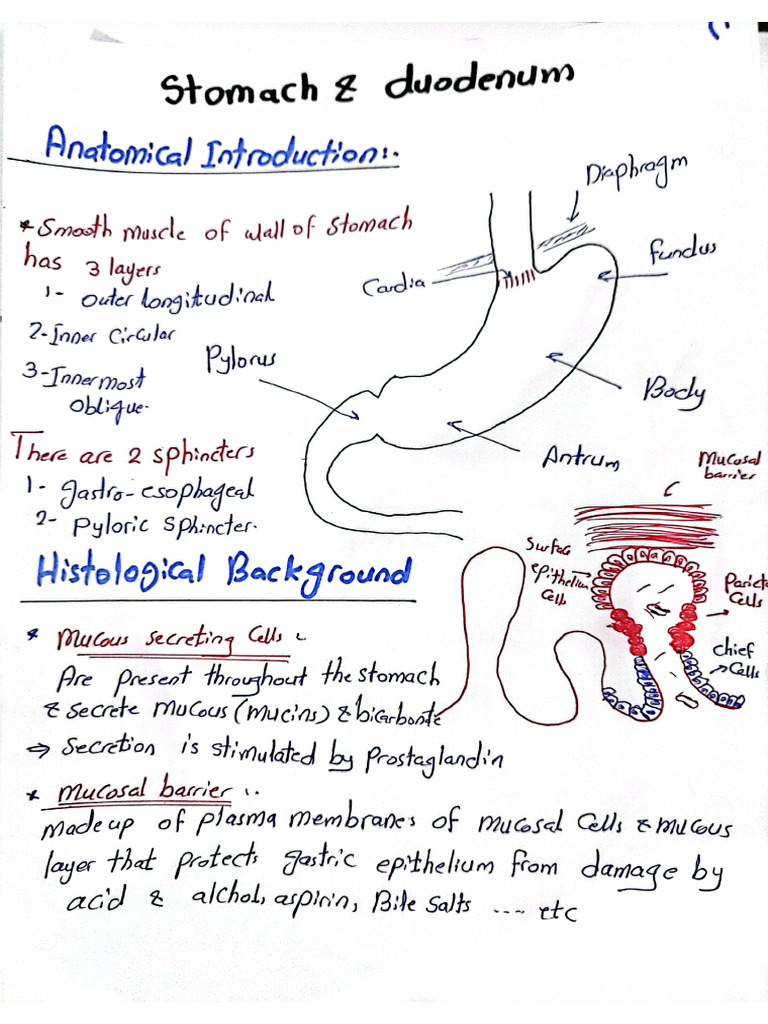 Stomach & duodenum
Anatomical Introduction:.
Diaphragm
* Smooth muscle of wall of stomach
has 3 layers
1- outer longitudinal
2- Inner Circular
3- Innermost
oblique.
Cardia
Fundus
Pylorus
Body
Antrum
There are 2 sphincters
1- gastro-esophageal
2- Pyloric Sphincter.
Mucosal
barrier
Surface
epithelium
Cells
Pariet
Cells
chief
Cells
Histological Background
* Mucous secreting Cells :.
Are present throughout the stomach
& secrete mucous (mucins) & bicarbonte
⇒ Secretion is stimulated by Prostaglandin
* Mucosal barrier :.
Made up of plasma membranes of mucosal Cells & mucous
layer that protects gastric epithelium from damage by
acid & alchol, aspirin, Bile salts .... etc